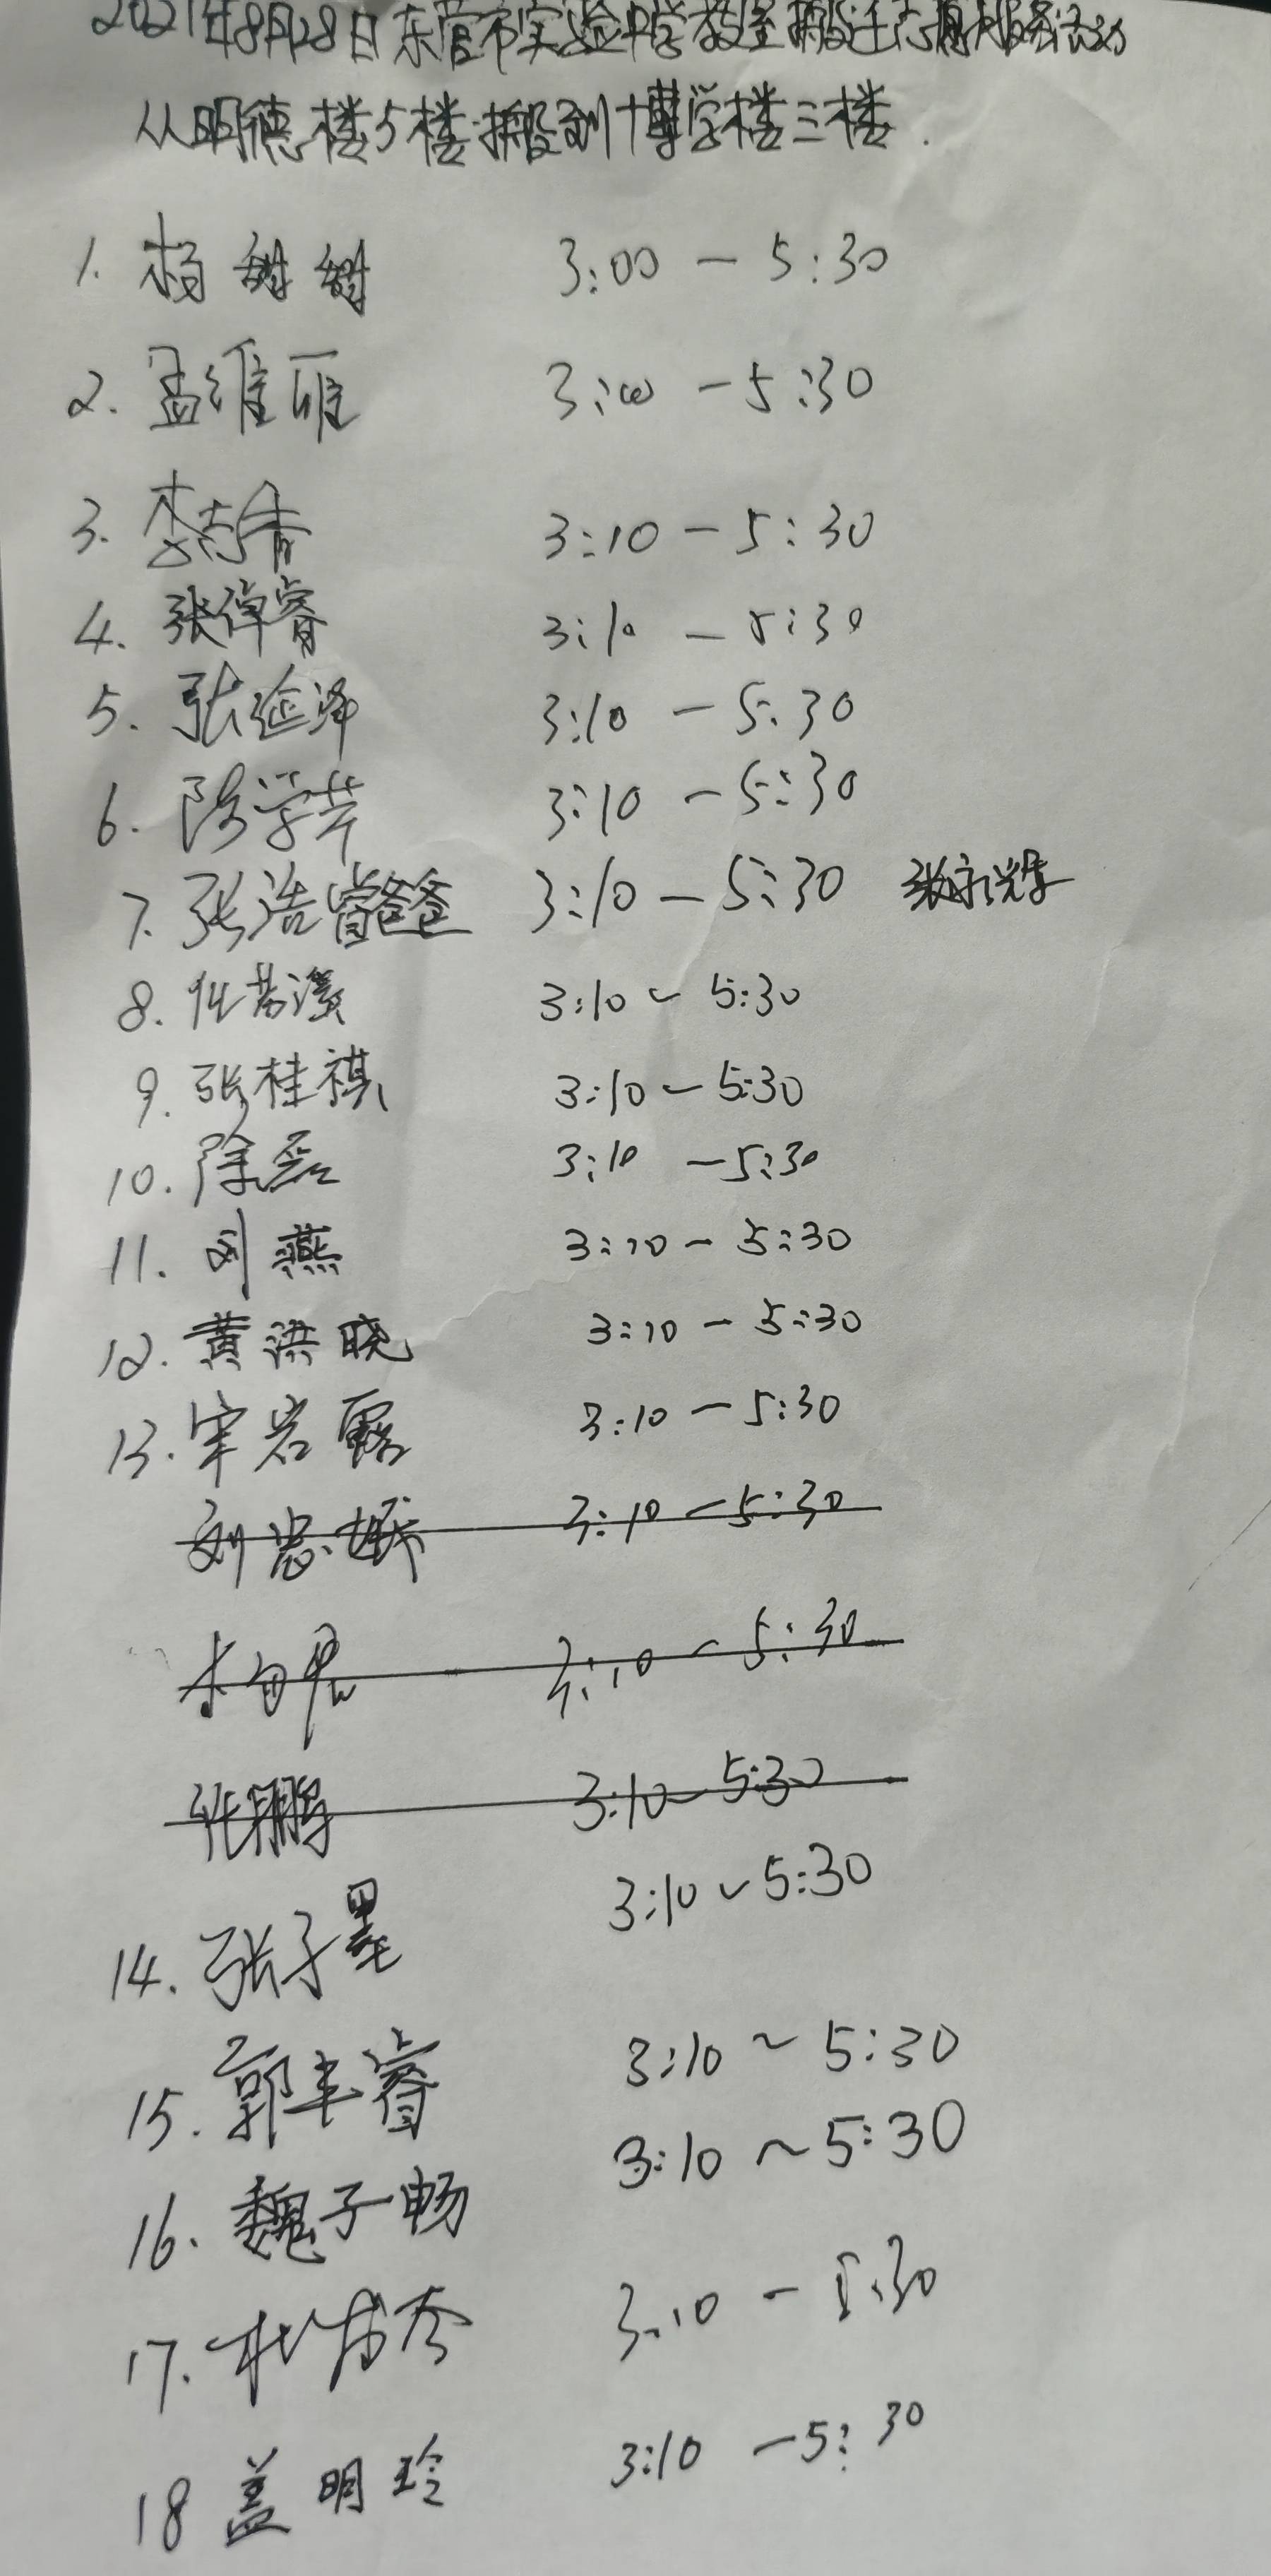 2021年8月28日东营市实验中学教室搬迁志愿服务活动
从明德楼5楼搬到博学楼三楼.
1. 杨甜甜 3:00 - 5:30
2. 孟维雅 3:00 - 5:30
3. 李吉香 3:10 - 5:30
4. 张倬睿 3:10 - 5:30
5. 张延泽 3:10 - 5:30
6. 陈学芹 3:10 - 5:30
7. 张浩睿爸爸 3:10 - 5:30
8. 3:10 ~ 5:30
9. 张桂祺 3:10 - 5:30
10. 徐磊 3:10 - 5:30
11. 刘燕 3:10 - 5:30
12. 黄洪晓 3:10 - 5:30
13. 宋岩露 3:10 - 5:30
刘忠城 3:10 - 5:30
3:10 - 5:30
张鹏 3:10 - 5:30
14. 张子墨 3:10 ~ 5:30
15. 郭丰睿 3:10 ~ 5:30
16. 魏子畅 3:10 ~ 5:30
17. 3:10 - 5:30
18 盖明玲 3:10 - 5:30